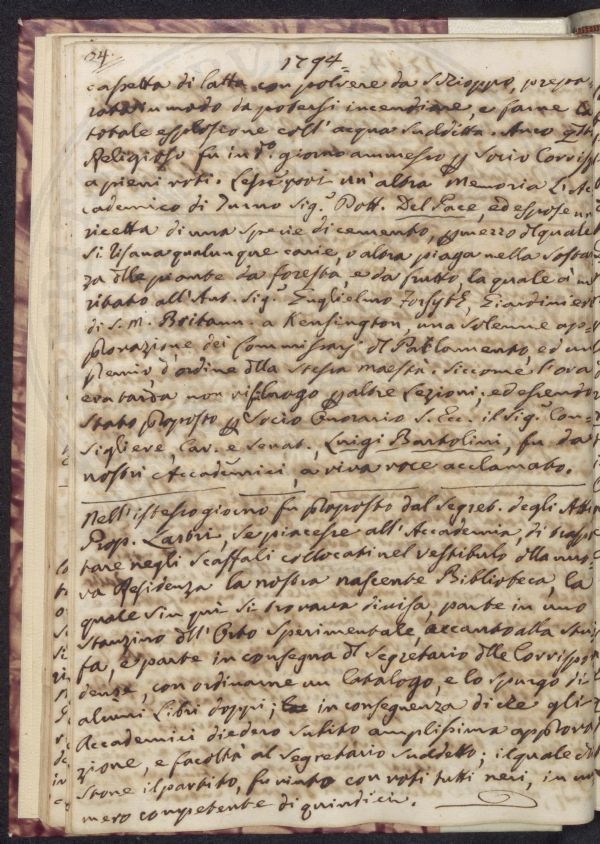 24.
1794
cassetta di latta con polvere da Schioppo, prepa
rata in modo da potersi incendiare, e farne la
totale esplosione coll' acqua suddetta. Anco qsto
Religioso fu in do. giorno ammesso p Socio Corrisp
a pieni voti. Lesse poi un' altra Memoria l' Ac
cademico di Turno Sig. Dott. Del Pace, ed espose una
ricetta di una specie di cemento, p mezzo dl quale
si risana qualunque carie, o altra piaga nella sostan
za dlle piante da foresta, e da frutto, la quale à me
ritato all' Aut. Sig. Guglielmo Forsyth, Giardiniere
di S. M. Britann. a Kensington, una solenne ap
provazione dei Commissarj dl Parlamento, ed un
premio d' ordine dlla stessa maestà. Siccome l' ora
era tarda non vi fu luogo p altre Lezioni; ed essendo
stato proposto p Socio Onorario S. Ecc. il Sig. Con
sigliere, Cav. e Senat. Luigi Bartolini, fu da
nostri Accademici, a viva voce acclamato.
Nell' istesso giorno fu proposto dal Segret. degli Atti
Prop. Lastri, se piacesse all' Accademia, di traspor
tare negli Scaffali collocati nel vestibulo dlla nuo
va Residenza la nostra nascente Biblioteca, la
quale sin qui si trovava divisa, parte in uno
Stanzino dll' Orto Sperimentale, accanto alla stu
fa, e parte in consegna dl Segretario dlle Corrispon
denze, con ordinarne un Catalogo, e lo spurgo di
alcuni Libri doppi; in conseguenza di che gli
Accademici diedero subito amplissima approva
zione, e facoltà al Segretario suddetto; il quale
stone il partito, fu vinto con voti tutti neri, in nu
mero competente di quindici.